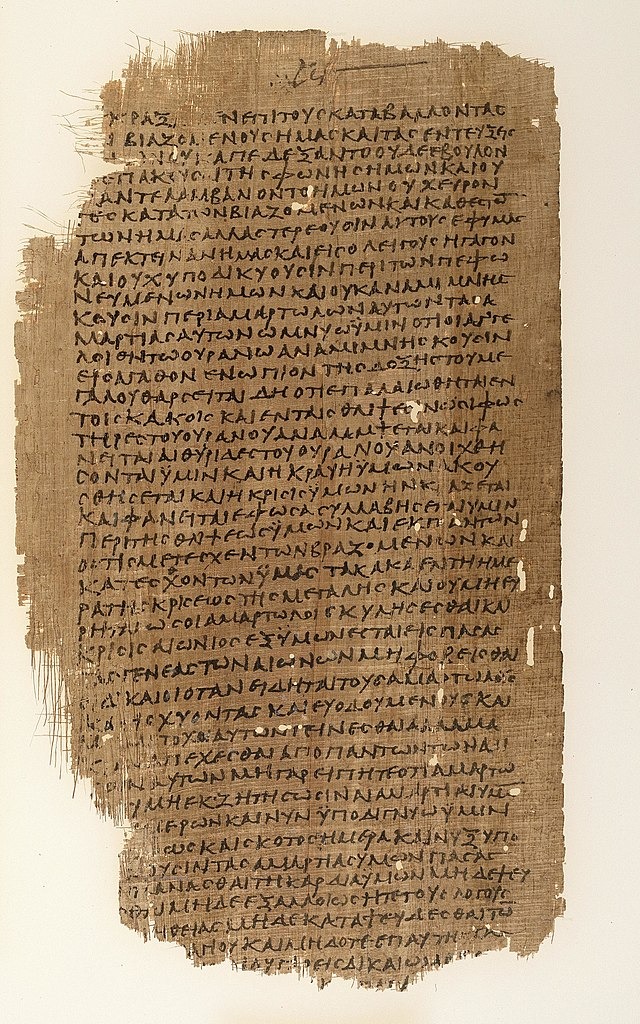 ΚΡΑΞ ΝΕΠΙΤΟΥΣΚΑΤΑΒΑΛΛΟΝΤΑΣ
ΒΙΑΖΟΜΕΝΟΥΣΗΜΑΣΚΑΙΤΑΣΕΝΤΕΥΞΕΙΣ
ΑΠΕΔΕΞΑΝΤΟΟΥΔΕΕΒΟΥΛΟΝ
ΕΠΑΚΟΥΣΑΙΤΗΣΦΩΝΗΣΗΜΩΝΚΑΙΟΥ
ΑΝΤΕΛΑΜΒΑΝΟΝΤΟΗΜΩΝΟΥΧΕΥΡΟΝ
ΤΕΣΚΑΤΑΤΩΝΒΙΑΖΟΜΕΝΩΝΚΑΙΚΑΤΕΣΘΟ
ΤΩΝΗΜΑΣΑΛΛΑΣΤΕΡΕΟΥΣΙΝΑΥΤΟΥΣΕΦΥΜΑΣ
ΑΠΕΚΤΕΙΝΑΝΗΜΑΣΚΑΙΕΙΣΟΛΕΙΓΟΥΣΗΓΑΓΟΝ
ΚΑΙΟΥΧΥΠΟΔΙΚΥΟΥΣΙΝΠΕΡΙΤΩΝΠΕΦΩ
ΝΕΥΜΕΝΩΝΗΜΩΝΚΑΙΟΥΚΑΝΑΜΙΜΝΗΣ
ΚΟΥΣΙΝΠΕΡΙΑΜΑΡΤΩΛΩΝΑΥΤΩΝΤΑΣΑ
ΜΑΡΤΙΑΣΑΥΤΩΝΟΜΝΥΩΫΜΙΝΟΤΙΟΙΑΓΓΕ
ΛΟΙΕΝΤΩΟΥΡΑΝΩΑΝΑΜΙΜΝΗΣΚΟΥΣΙΝ
ΕΙΣΑΓΑΘΟΝΕΝΩΠΙΟΝΤΗΣΔΟΞΗΣΤΟΥΜΕ
ΓΑΛΟΥΘΑΡΣΕΙΤΑΙΔΗΟΤΙΕΠΑΛΑΙΩΘΗΤΑΙΕΝ
ΤΟΙΣΚΑΚΟΙΣΚΑΙΕΝΤΑΙΣΘΛΙΨΕΣΙΝΩΣΙΦΩΣ
ΤΗΡΕΣΤΟΥΟΥΡΑΝΟΥΑΝΑΛΑΜΨΕΤΑΙΚΑΙΦΑ
ΝΕΙΤΑΙΑΙΘΥΡΙΔΕΣΤΟΥΟΥΡΑΝΟΥΑΝΟΙΧΘΗ
ΣΟΝΤΑΙΫΜΙΝΚΑΙΗΚΡΑΥΓΗΫΜΩΝΑΚΟΥ
ΣΘΗΣΕΤΑΙΚΑΙΗΚΡΙΣΙΣΫΜΩΝΗΝΚΡΑΖΕΤΑΙ
ΚΑΙΦΑΝΕΙΤΑΙΕΦΟΣΑΣΥΛΛΑΒΗΣΕΤΑΙΥΜΙΝ
ΠΕΡΙΤΗΣΘΛΙΨΕΩΣΫΜΩΝΚΑΙΕΚΠΑΝΤΩΝ
ΟΣΤΙΣΜΕΤΕΣΧΕΝΤΩΝΒΙΑΖΟΜΕΝΩΝΚΑΙ
ΚΑΤΕΣΘΟΝΤΩΝΫΜΑΣΤΑΚΑΚΑΕΝΤΗΗΜΕ
ΡΑΤΗΣΚΡΙΣΕΩΣΤΗΣΜΕΓΑΛΗΣΚΑΙΟΥΜΗΕΥ
ΡΗΤΑΙΩΣΟΙΑΜΑΡΤΩΛΟΙΣΚΥΛΗΣΕΣΘΑΙΚΑΙ
ΚΡΙΣΙΣΑΙΩΝΙΟΣΕΞΥΜΩΝΕΣΤΑΙΕΙΣΠΑΣΑΣ
ΤΑΣΓΕΝΕΑΣΤΩΝΑΙΩΝΩΝΜΗΦΟΒΕΙΣΘΑΙ
ΟΙΔΙΚΑΙΟΙΟΤΑΝΕΙΔΗΤΑΙΤΟΥΣΑΜΑΡΤΩΛΟΥΣ
ΚΑΤΙΣΧΥΟΝΤΑΣΚΑΙΕΥΟΔΟΥΜΕΝΟΥΣΚΑΙ
ΑΥΤΩΝΓΕΙΝΕΣΘΑΙΑΛΛΑΜΑ
ΑΠΕΧΕΣΘΑΙΑΠΟΠΑΝΤΩΝΤΩΝΑΔΙ
ΑΥΤΩΝΜΗΓΑΡΕΙΠΗΤΕΟΤΙΑΜΑΡΤΩ
ΜΗΕΚΖΗΤΗΣΩΣΙΝΑΙΑΜΑΡΤΙΑΙΥΜΩ
ΜΕΡΩΝΚΑΙΝΥΝΫΠΟΔΙΓΝΥΩΫΜΙΝ
ΩΣΚΑΙΣΚΟΤΟΣΗΜΕΡΑΚΑΙΝΥΞΥΠΟ
ΟΥΣΙΝΤΑΣΑΜΑΡΤΙΑΣΥΜΩΝΠΑΣΑΣ
ΠΛΑΝΑΣΘΑΙΤΗΚΑΡΔΙΑΥΜΩΝΜΗΔΕΨΕΥ
ΜΗΔΕΕΞΑΛΛΟΙΩΣΗΤΕΤΟΥΣΛΟΓΟΥΣ
ΘΕΙΑΣΜΗΔΕΚΑΤΑΨΕΥΔΕΣΘΑΙΤΩ
ΓΙΟΥΚΑΙΜΗΔΟΤΕΕΠΑ
ΔΙΚΑΙΩ